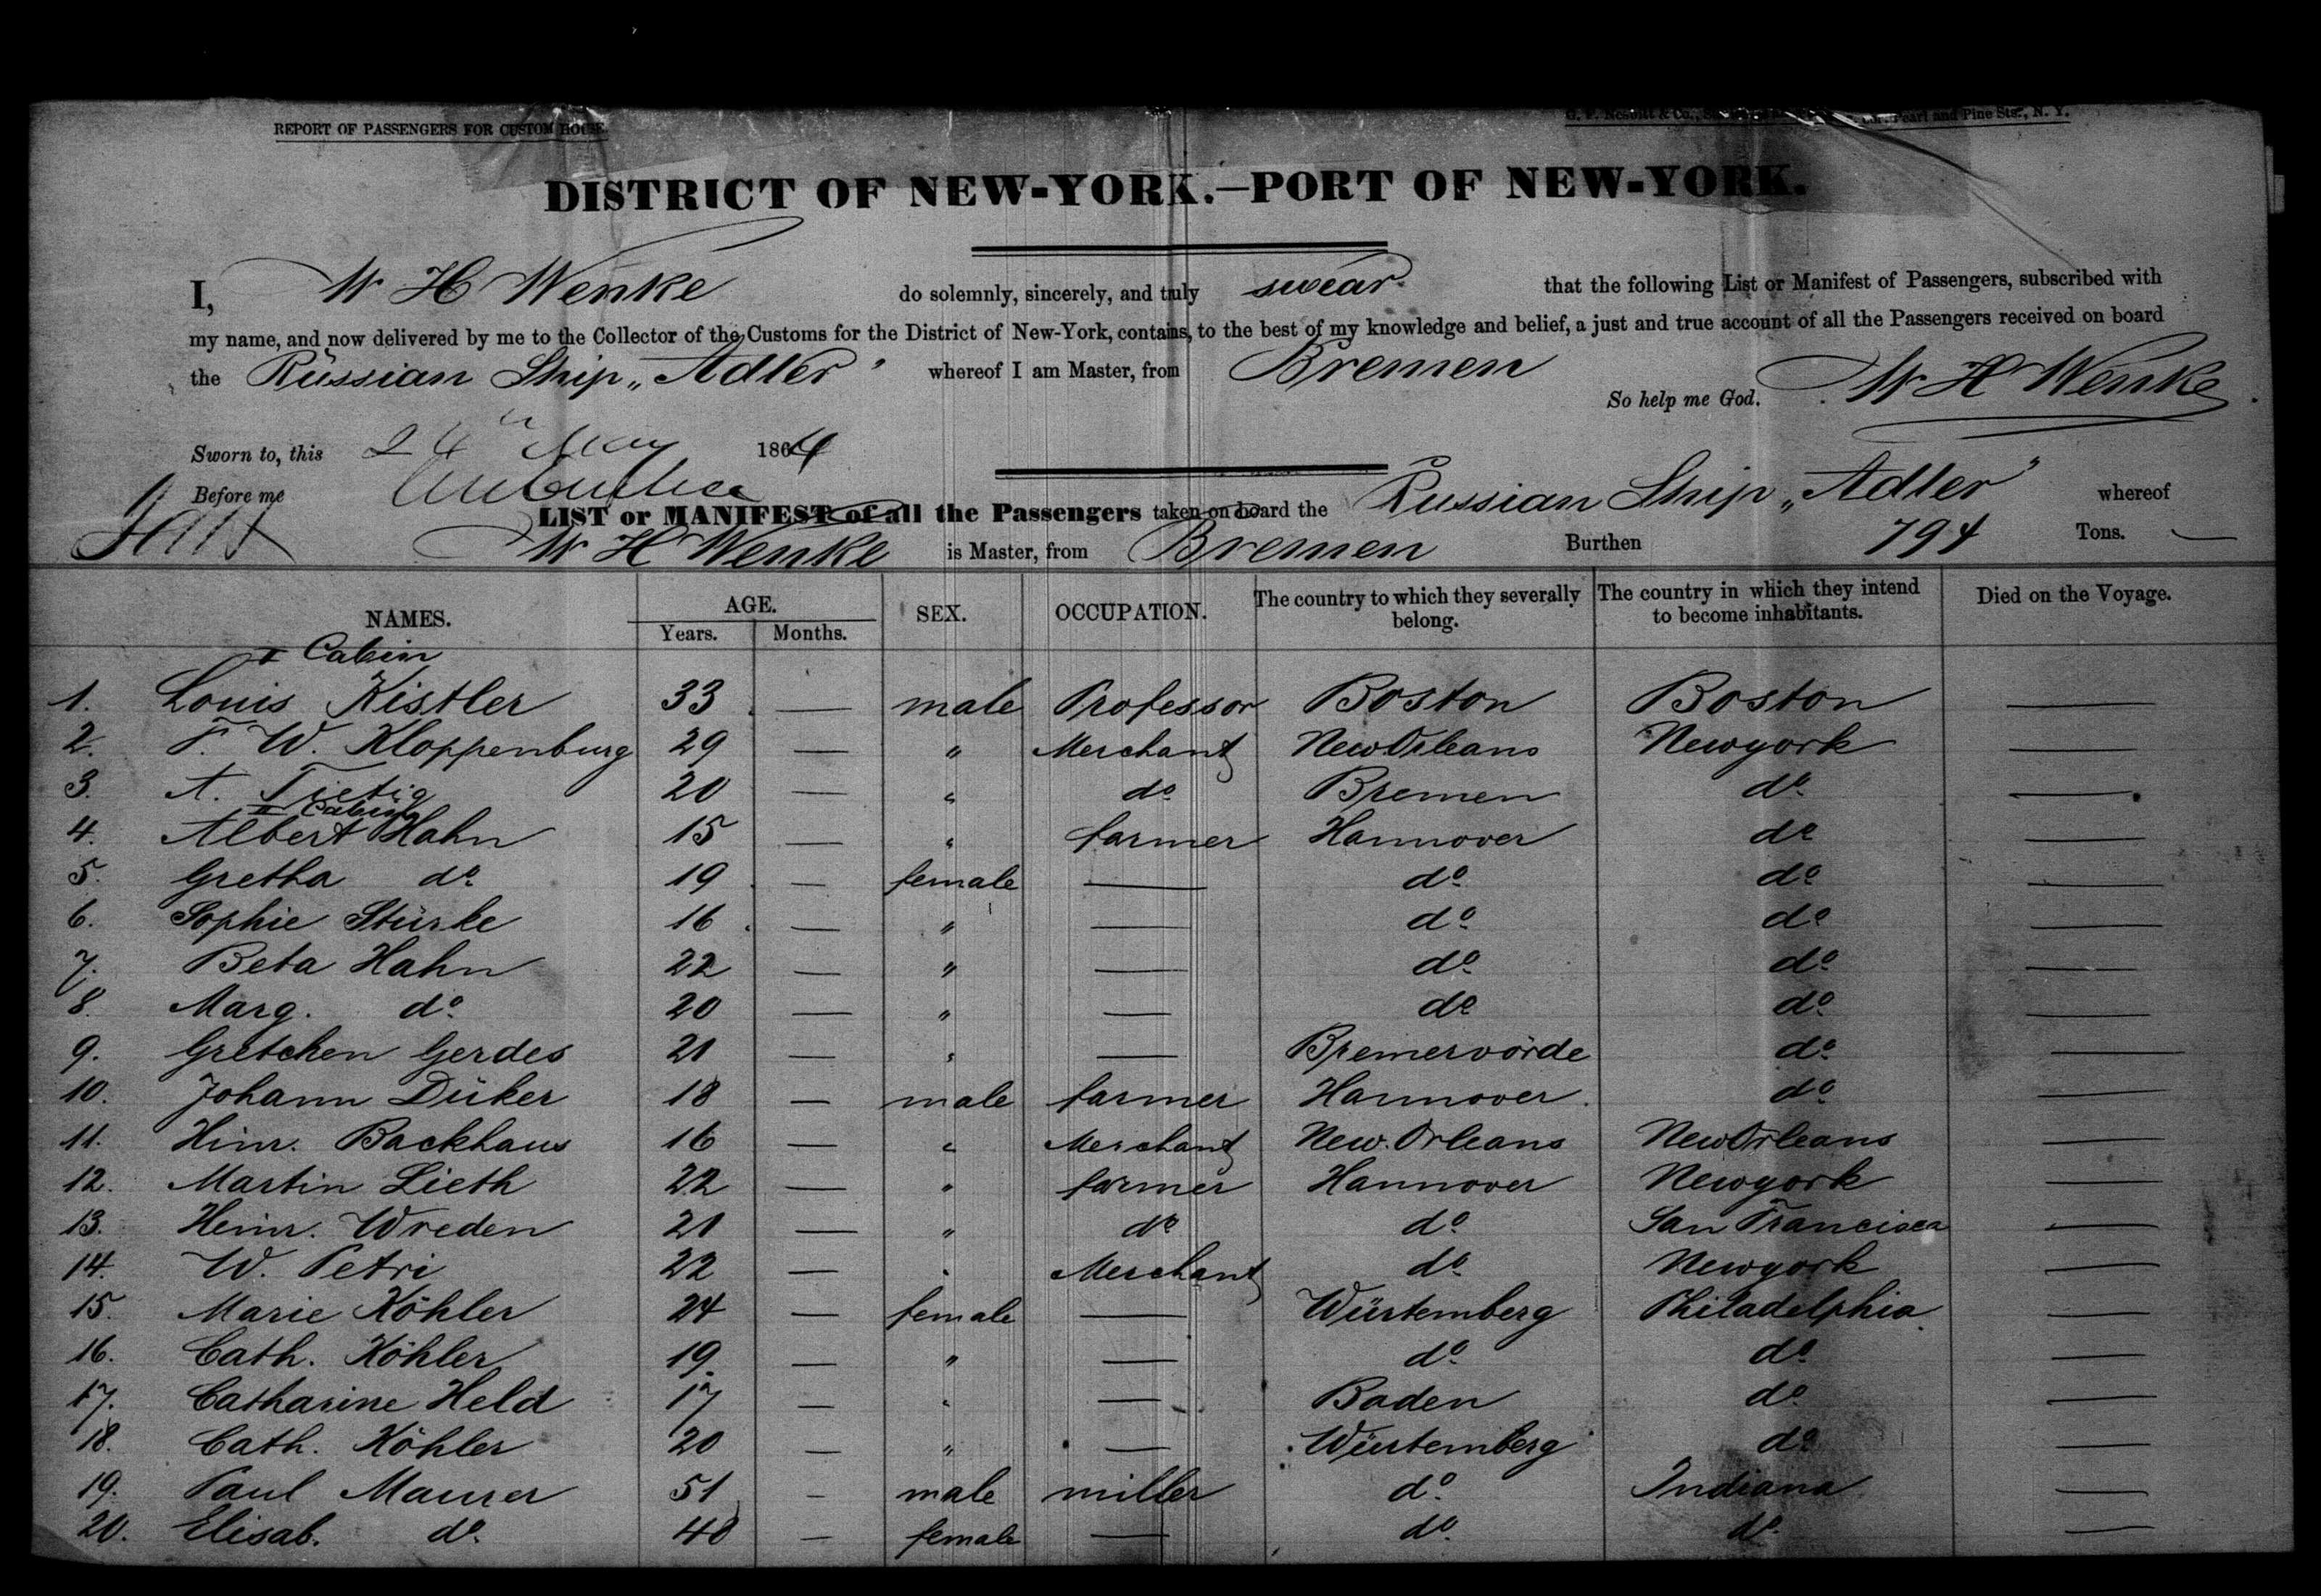 REPORT OF PASSENGERS FOR CUSTOM HOUSE.
G. F. Nesbitt & Co., Pearl and Pine Sts., N. Y.
DISTRICT OF NEW-YORK.—PORT OF NEW-YORK.
I, W H Wenke do solemnly, sincerely, and truly swear that the following List or Manifest of Passengers, subscribed with
my name, and now delivered by me to the Collector of the Customs for the District of New-York, contains, to the best of my knowledge and belief, a just and true account of all the Passengers received on board
the Rüssian Ship „Adler" whereof I am Master, from Bremen
So help me God. W H Wenke
Sworn to, this 24th May 1864
Before me
LIST or MANIFEST of all the Passengers taken on board the Russian Ship „Adler" whereof
W H Wenke is Master, from Bremen Burthen 794 Tons.
NAMES. AGE. Years. Months. SEX. OCCUPATION. The country to which they severally belong. The country in which they intend to become inhabitants. Died on the Voyage.
I Cabin
1. Louis Kistler 33 — male Professor Boston Boston —
2. F. W. Kloppenburg 29 — " Merchant NewOrleans Newyork —
3. A. Tietig 20 — " do Bremen do —
II Cabin
4. Albert Hahn 15 — " farmer Hannover do —
5. Gretha do 19 — female — do do —
6. Sophie Stürke 16 — " — do do —
7. Beta Hahn 22 — " — do do —
8. Marg. do 20 — " — do do —
9. Gretchen Gerdes 21 — " — Bremervörde do —
10. Johann Düker 18 — male farmer Hannover do —
11. Hinr. Backhaus 16 — " Merchant New Orleans NewOrleans —
12. Martin Lieth 22 — " farmer Hannover Newyork —
13. Heinr. Wreden 21 — " do do San Francisca —
14. W. Petri 22 — " Merchant do Newyork —
15. Marie Köhler 24 — female — Würtemberg Philadelphia —
16. Cath. Köhler 19 — " — do do —
17. Catharine Held 17 — " — Baden do —
18. Cath. Köhler 20 — " — Würtemberg do —
19. Paul Maurer 51 — male miller do Indiana —
20. Elisab. do 40 — female — do do —